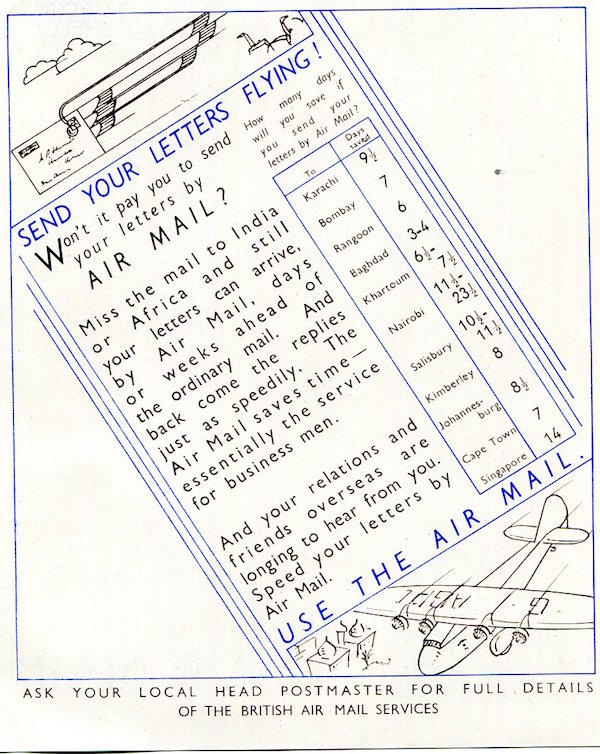 SEND YOUR LETTERS FLYING!
Won't it pay you to send
your letters by
AIR MAIL?
Miss the mail to India
or Africa and still
your letters can arrive,
by Air Mail, days
or weeks ahead of
the ordinary mail. And
back come the replies
just as speedily. The
Air Mail saves time—
essentially the service
for business men.
And your relations and
friends overseas are
longing to hear from you.
Speed your letters by
Air Mail.
How many days
will you save if
you send your
letters by Air Mail?
To Days saved
Karachi 9½
Bombay 7
Rangoon 6
Baghdad 3-4
Khartoum 6½-7½
Nairobi 11½-23½
Salisbury 10½-11½
Kimberley 8
Johannes-
burg 8½
Cape Town 7
Singapore 14
USE THE AIR MAIL.
ASK YOUR LOCAL HEAD POSTMASTER FOR FULL DETAILS
OF THE BRITISH AIR MAIL SERVICES